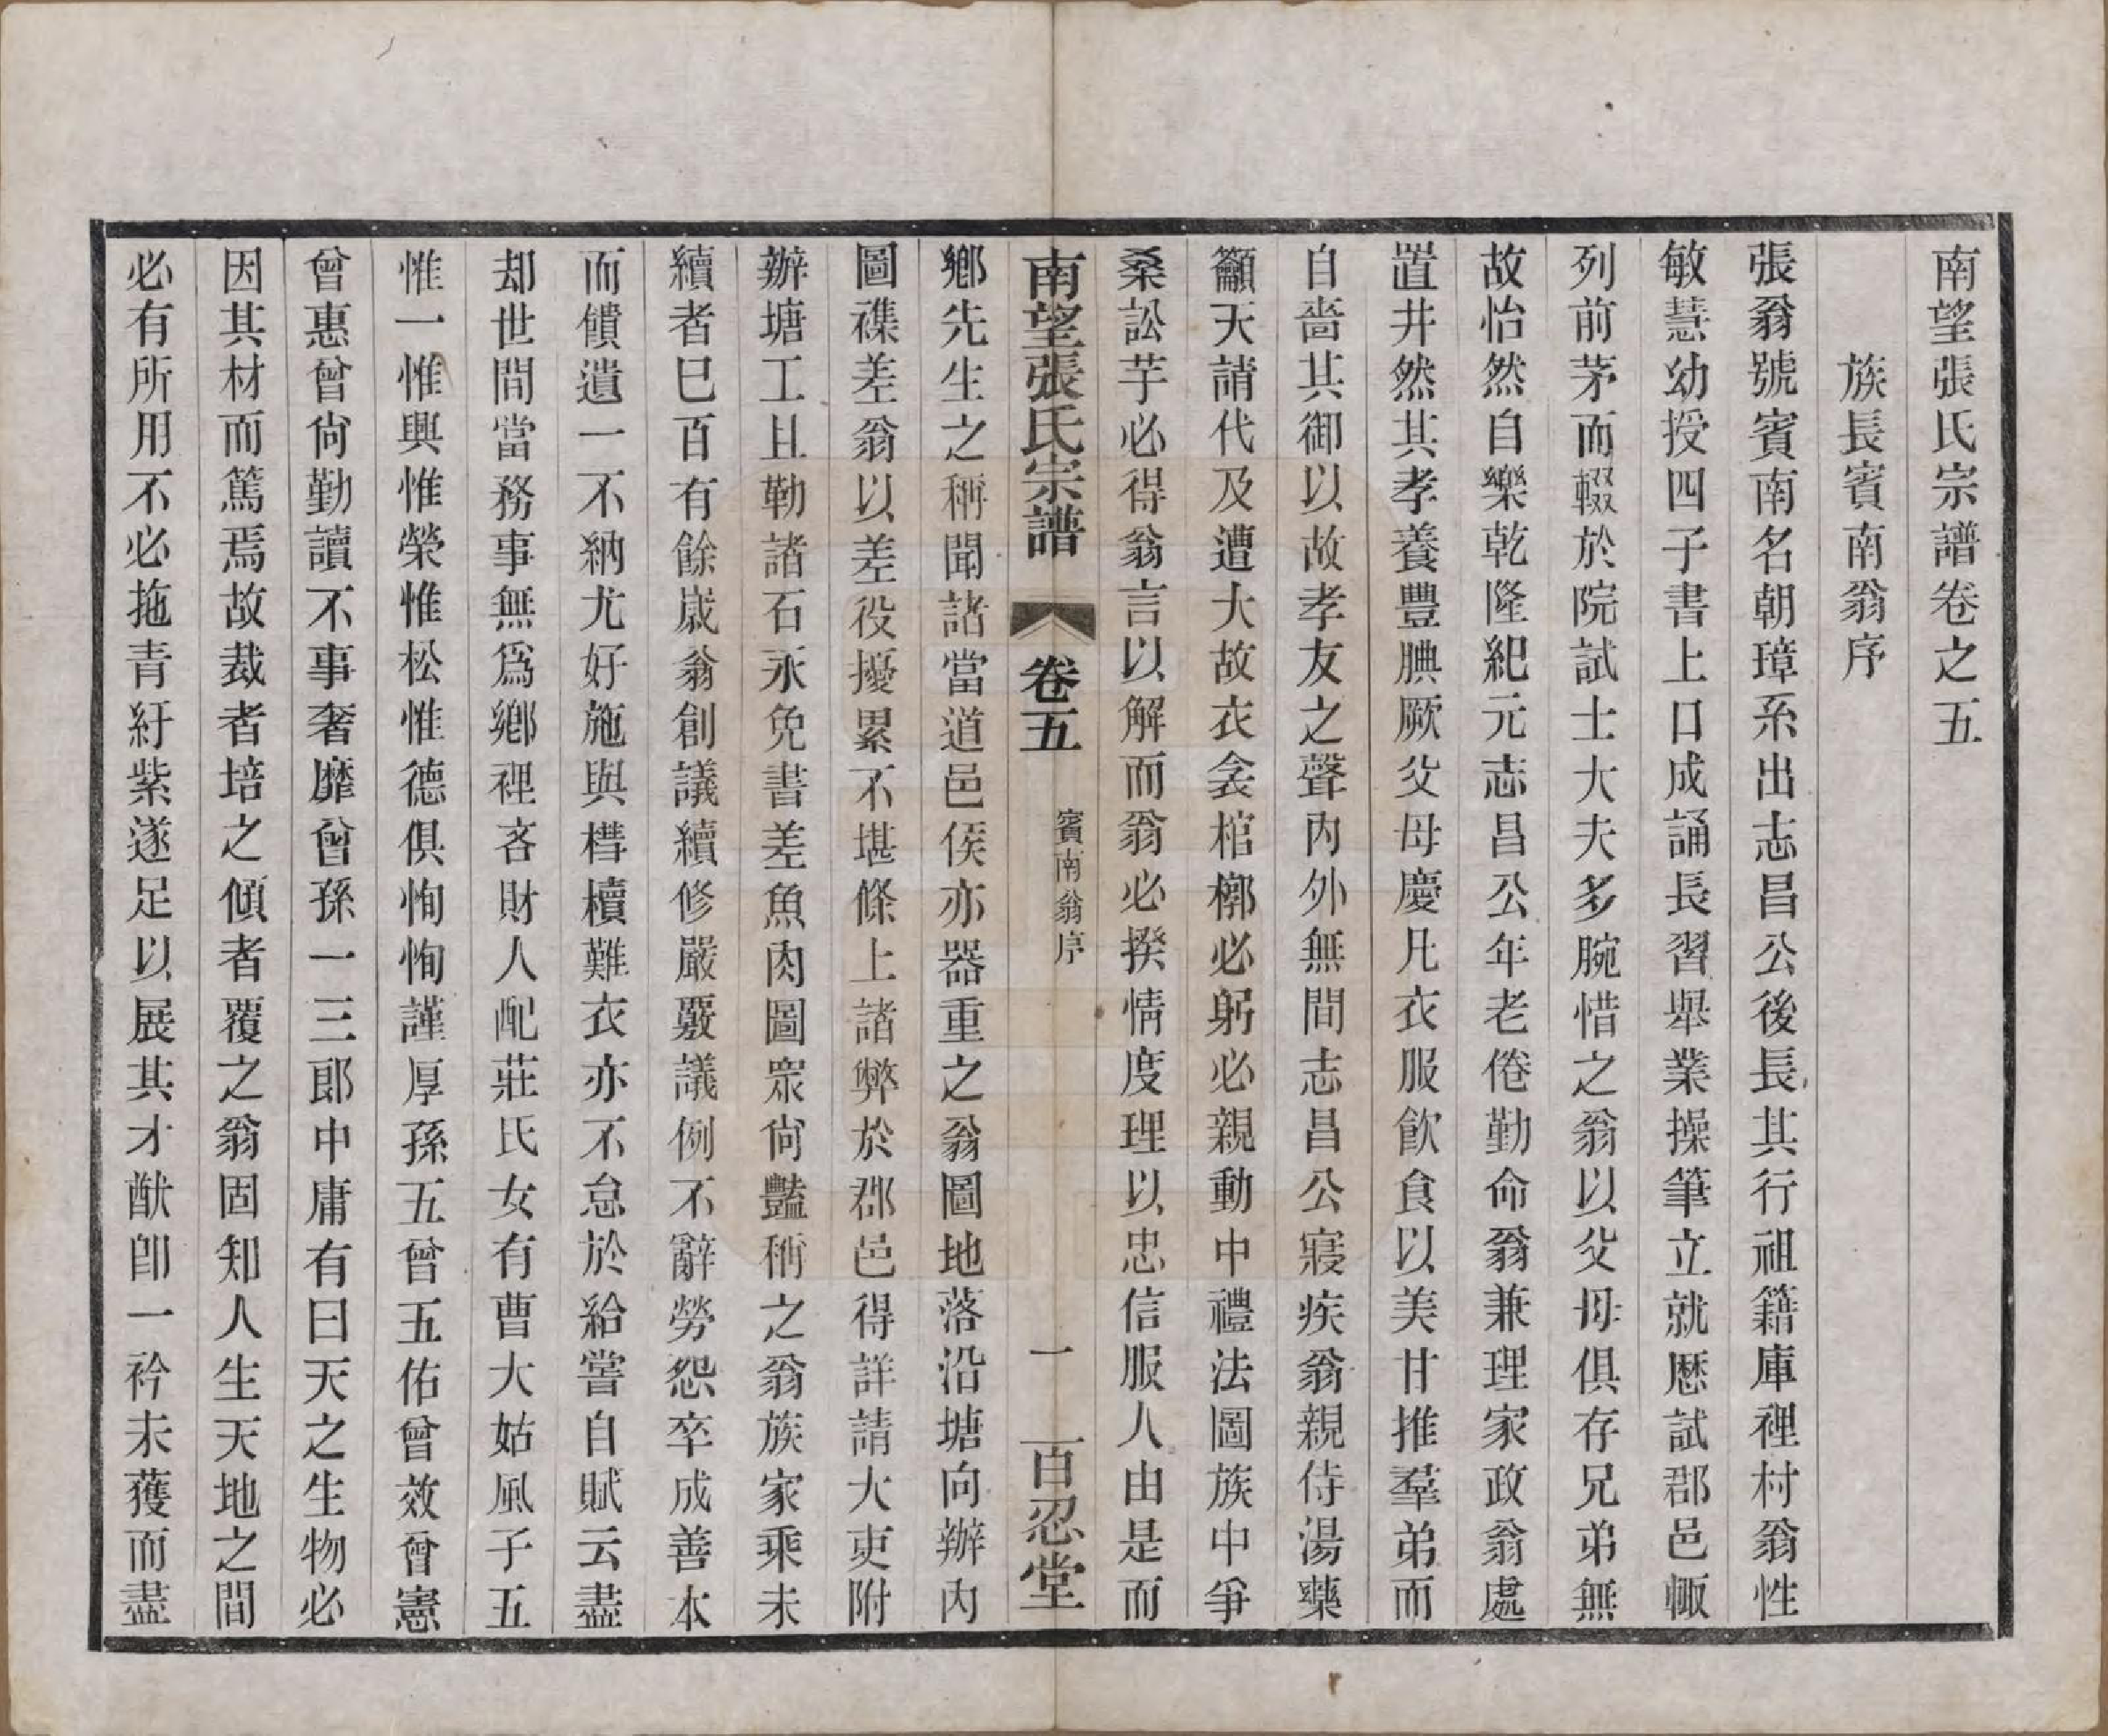 南望張氏宗譜卷之五
族長賓南翁序
張翁號賓南名朝璋系出志昌公後長其行祖籍庫裡村翁性
敏慧幼授四子書上口成誦長習舉業操筆立就歷試郡邑輙
列前茅而輟於院試士大夫多腕惜之翁以父母俱存兄弟無
故怡然自樂乾隆紀元志昌公年老倦勤命翁兼理家政翁處
置井然其孝養豐腆厥父母慶凡衣服飲食以美甘推羣弟而
自嗇其御以故孝友之聲內外無間志昌公寢疾翁親侍湯藥
籲天請代及遭大故衣衾棺槨必躬必親動中禮法圖族中爭
桑訟芋必得翁言以解而翁必揆情度理以忠信服人由是而
南望張氏宗譜 卷五 賓南翁序 一 百忍堂
鄉先生之稱聞諸當道邑侯亦器重之翁圖地落沿塘向辦內
圖襍差翁以差役擾累不堪條上諸弊於郡邑得詳請大吏附
辦塘工且勒諸石永免書差魚肉圖衆尙豔稱之翁族家乘未
續者巳百有餘嵗翁創議續修嚴覈議例不辭勞怨卒成善本
而饋遺一不納尤好施與槥櫝難衣亦不怠於給嘗自賦云盡
却世間當務事無爲鄉裡吝財人配莊氏女有曹大姑風子五
惟一惟興惟榮惟松惟德俱恂恂謹厚孫五曾五佑曾效曾憲
曾惠曾尙勤讀不事奢靡曾孫一三郎中庸有曰天之生物必
因其材而篤焉故栽者培之傾者覆之翁固知人生天地之間
必有所用不必拖青紆紫遂足以展其才猷卽一衿未獲而盡